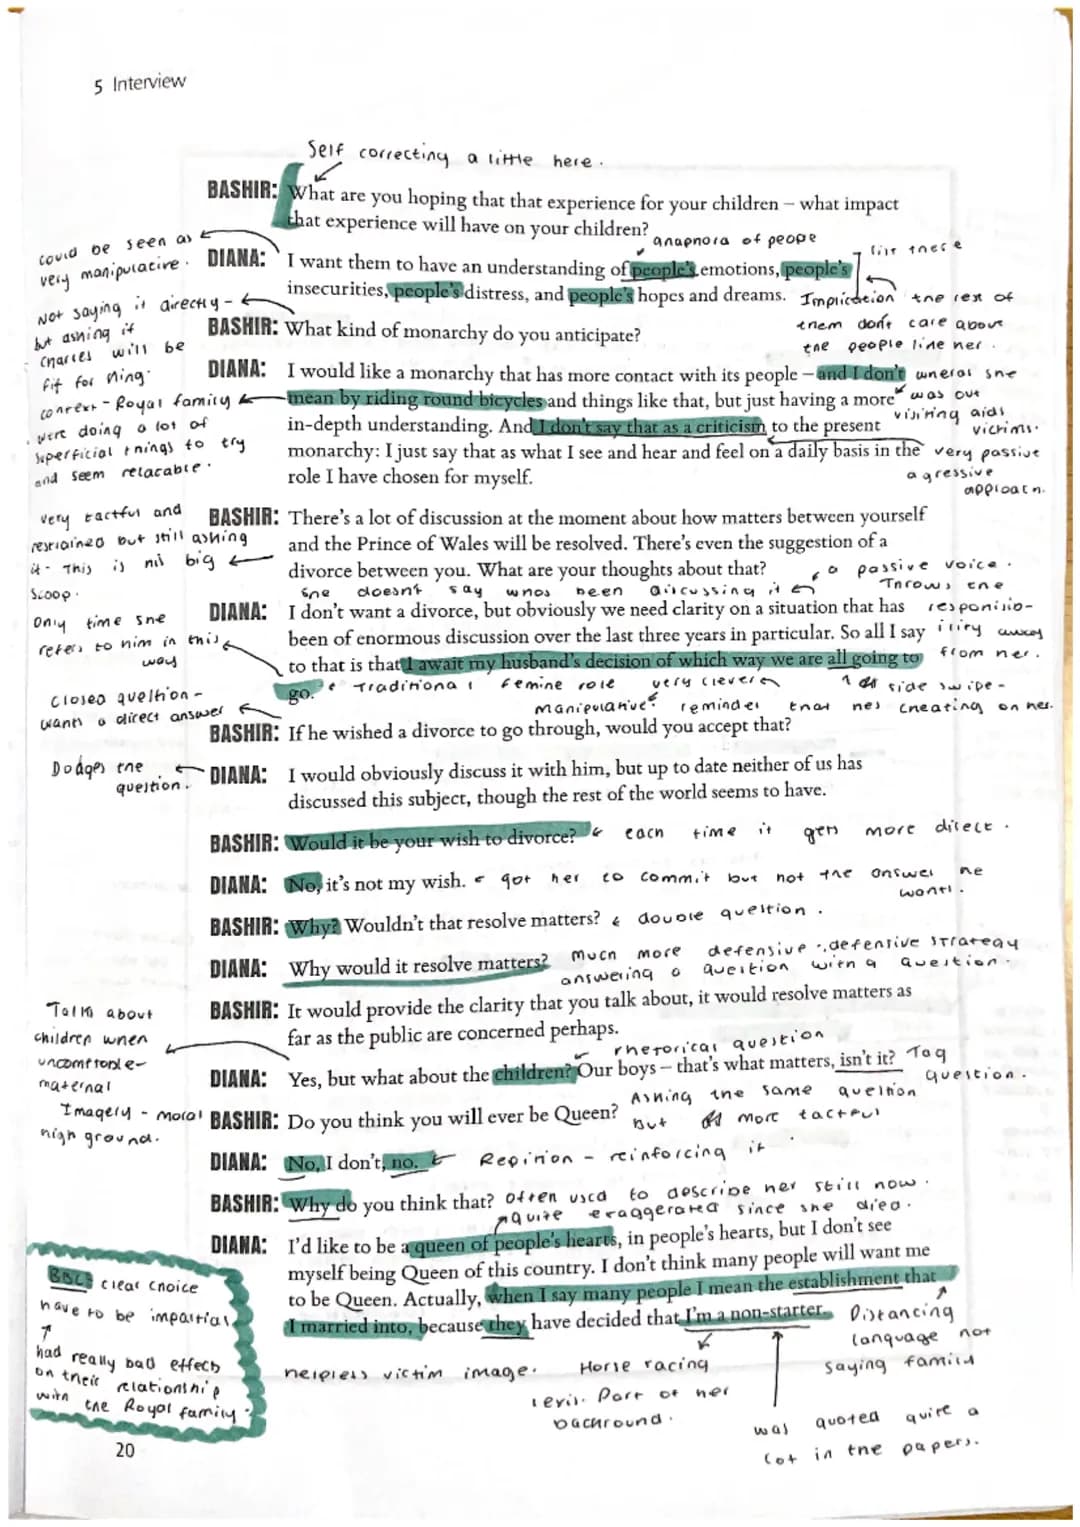 5 Interview
Self correcting a little here.
BASHIR: What are you hoping that that experience for your children – what impact
that experience will have on your children?
could be seen as
very manipulative.
anaphora of people
list there
DIANA: I want them to have an understanding of people's emotions, people's
insecurities, people's distress, and people's hopes and dreams.
Implication the rest of
them don't care about
the people like her.
Not saying it directly -
but asking if
Charles will be
fit for king.
BASHIR: What kind of monarchy do you anticipate?
DIANA: I would like a monarchy that has more contact with its people – and I don't
mean by riding round bicycles and things like that, but just having a more
in-depth understanding. And I don't say that as a criticism to the present
monarchy: I just say that as what I see and hear and feel on a daily basis in the
role I have chosen for myself.
whereas she
was out
visiting aids
victims.
very passive
agressive
approach.
context - Royal family
were doing a lot of
superficial things to try
and seem relatable.
BASHIR: There's a lot of discussion at the moment about how matters between yourself
and the Prince of Wales will be resolved. There's even the suggestion of a
divorce between you. What are your thoughts about that?
very tactful and
restrained but still asking
it - This is his big
scoop.
she doesn't say whos been discussing it
passive voice.
Throws the
responisio-
ility away
from her.
DIANA: I don't want a divorce, but obviously we need clarity on a situation that has
been of enormous discussion over the last three years in particular. So all I say
to that is that I await my husband's decision of which way we are all going to
go.
Only time she
refers to him in this
way
Traditional femine role
very clever
manipulative?
side swipe -
reminder that hes cheating on her.
closed question -
wants a direct answer
BASHIR: If he wished a divorce to go through, would you accept that?
Dodges the
question.
DIANA: I would obviously discuss it with him, but up to date neither of us has
discussed this subject, though the rest of the world seems to have.
BASHIR: Would it be your wish to divorce? each time it gets more direct.
DIANA: No, it's not my wish. got her to commit but not the answer he
wants.
BASHIR: Why? Wouldn't that resolve matters? double question.
DIANA: Why would it resolve matters? much more defensive defensive strategy
answering a question with a question.
BASHIR: It would provide the clarity that you talk about, it would resolve matters as
far as the public are concerned perhaps.
Talks about
children when
uncomftorble -
maternal
Imagery - moral
high ground.
rhetorical question
DIANA: Yes, but what about the children? Our boys – that's what matters, isn't it? Tag
question.
BASHIR: Do you think you will ever be Queen? Asking the same question
but more tactful
DIANA: No, I don't, no. Repition - reinforcing it
BASHIR: Why do you think that? often used to describe her still now.
quite exaggerated since she died.
DIANA: I'd like to be a queen of people's hearts, in people's hearts, but I don't see
myself being Queen of this country. I don't think many people will want me
to be Queen. Actually, when I say many people I mean the establishment that
I married into, because they have decided that I'm a non-starter.
Distancing
language not
saying family
helpless victim image.
Horse racing
Part of her
background.
was quoted quite a
lot in the papers.
BBC: clear choice
have to be impartial
had really bad effects
on their relationship
with the Royal family.
20